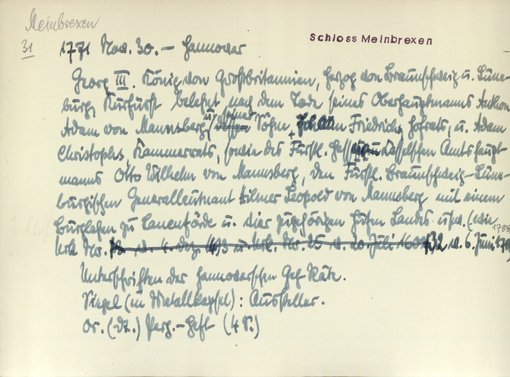 Meinbrexen
31
Schloss Meinbrexen
1771 Nov. 30. – Hannover
Georg III. König von Großbritannien, Herzog von Braunschweig u. Lüne-
burg, Kurfürst belehnt nach dem Tode seines Oberhauptmanns Anton
Adam von Mannsberg u. dessen Söhne, Johann Friedrichs, Hofrats, u. Adam
Christophs, Kammerrats, sowie des Fürstl. Hessischen Casselschen Amtshaupt-
manns Otto Wilhelm von Mannsberg, den Fürstl. Braunschweig-Lüne-
burgischen Generalleutnant Hilmer Leopold von Mannsberg mit einem
Burglehen zu Lauenförde u. vier zugehörigen Hufen Landes usw. (wie
Urk. Nr. 132 v. 6. Juni
Unterschriften der Hannoverschen Geh. Räte.
Siegel (in Metallkapsel): Aussteller.
Or. (dt.) Perg.-Heft (4 S.)